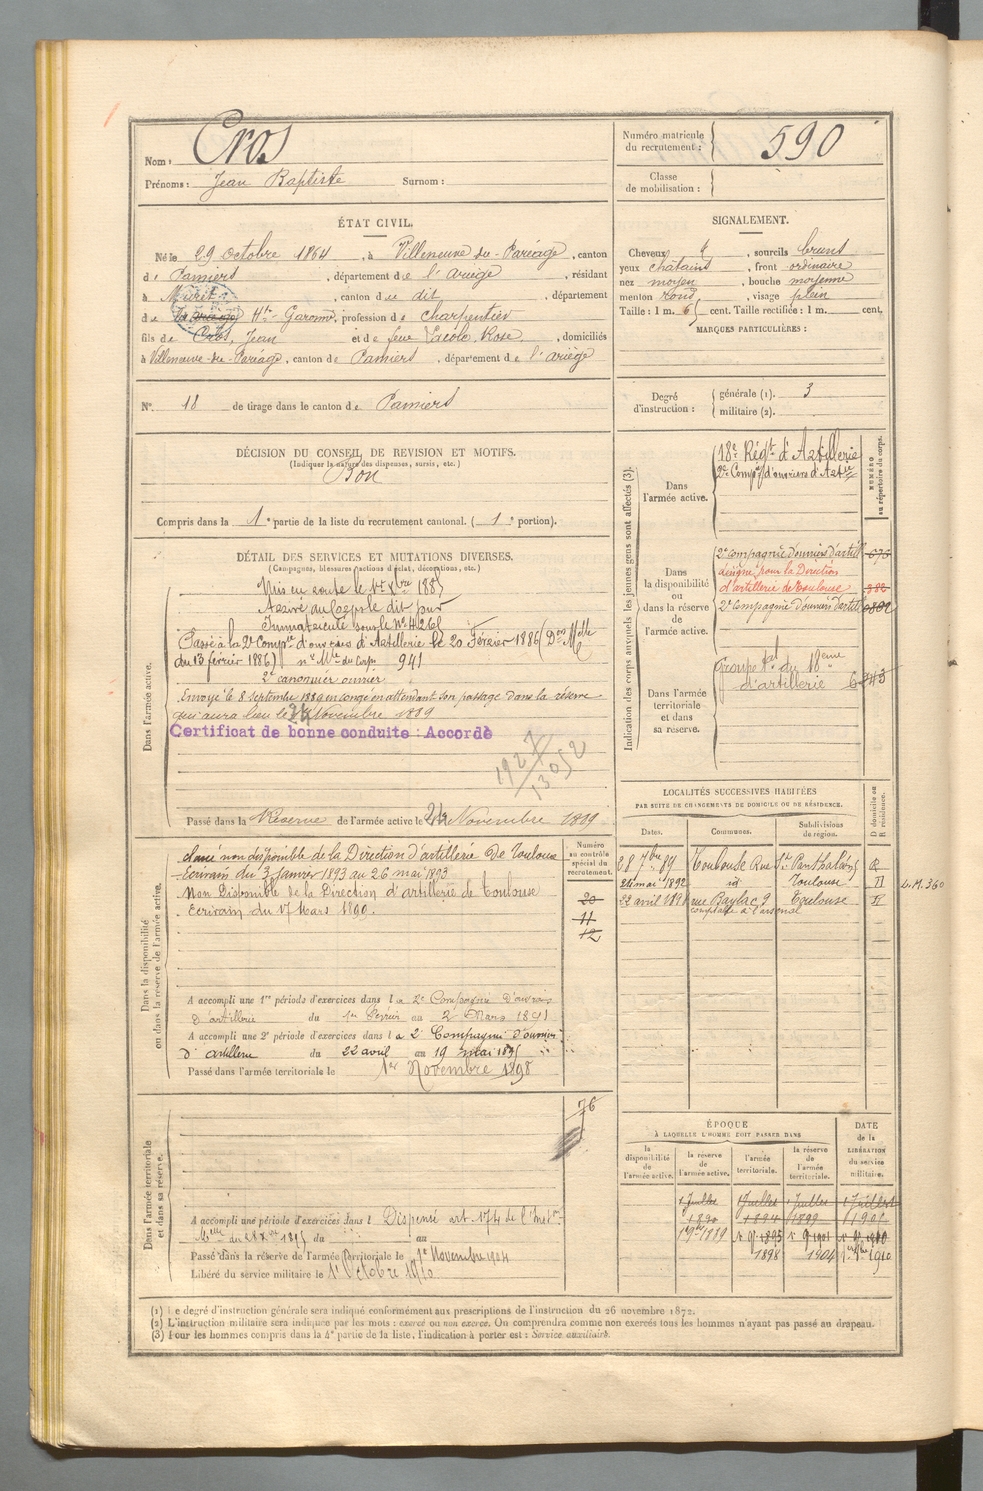 Nom : Cros
Prénoms : Jean Baptiste Surnom :
Numéro matricule du recrutement : 590
Classe de mobilisation :
ÉTAT CIVIL.
Né le 29 Octobre 1864, à Villeneuve-du-Paréage, canton
de Pamiers, département de l'Ariège, résidant
à Muret, canton de dit, département
de Hte-Garonne, profession de charpentier
fils de Cros, Jean et de feue Rose, domiciliés
à Villeneuve-du-Paréage, canton de Pamiers, département de l'Ariège
SIGNALEMENT.
Cheveux et, sourcils bruns
yeux chatains, front ordinaire
nez moyen, bouche moyenne
menton rond, visage plein
Taille : 1 m. 65 cent. Taille rectifiée : 1 m. cent.
MARQUES PARTICULIÈRES :
N° 18 de tirage dans le canton de Pamiers
Degré d'instruction : générale (1). 3
militaire (2).
DÉCISION DU CONSEIL DE REVISION ET MOTIFS.
(Indiquer la nature des dispenses, sursis, etc.)
Bon
Compris dans la 1e partie de la liste du recrutement cantonal. (1e portion).
DÉTAIL DES SERVICES ET MUTATIONS DIVERSES.
(Campagnes, blessures, actions d'éclat, décorations, etc.)
Dans l'armée active.
Mis en route le 1er Xbre 1885
Arrivé au corps le dit jour
Immatriculé sous le N° 4261
Passé à la 2e Compie d'ouvriers d'Artillerie le 20 Février 1886 (Don Melle
du 13 février 1886) n° Mle du Corps 941
2e canonnier ouvrier
Envoyé le 8 septembre 1889 en congé en attendant son passage dans la réserve
qui aura lieu le 24 Novembre 1889
Certificat de bonne conduite : Accordé
1927
13052
Passé dans la Réserve de l'armée active le 24 Novembre 1889
Indication des corps auxquels les jeunes gens sont affectés (3).
NUMÉRO au répertoire du corps.
Dans l'armée active.
18e Régt d'Artillerie
2e Compie d'ouvriers d'Artie
Dans la disponibilité ou dans la réserve de l'armée active.
2e Compagnie d'ouvriers d'artill 675
désigné pour la Direction
d'artillerie de Toulouse 382
2e Compagnie d'ouvriers d'artill
Dans l'armée territoriale et dans sa réserve.
Groupe tal du 18eme
d'artillerie
LOCALITÉS SUCCESSIVES HABITÉES
PAR SUITE DE CHANGEMENTS DE DOMICILE OU DE RÉSIDENCE.
Dates. Communes. Subdivisions de région. D domicile ou R résidence.
8 7bre 89 Toulouse Rue Ste Panthaléon R
24 mai 1892 id Toulouse
22 avril rue Baylac, 9 Toulouse
comptable à l'arsenal
L.M. 360
Dans la disponibilité ou dans la réserve de l'armée active.
Numéro au contrôle spécial du recrutement.
classé non disponible de la Direction d'artillerie de Toulouse
Ecrivain du 3 Janvier 1893 au 26 mai 1893
Non Disponible de la Direction d'artillerie de Toulouse
Ecrivain du 17 Mars 1890.
20
11
12
A accompli une 1re période d'exercices dans la 2e Compagnie d'ouvriers
d'artillerie du 1er Février au 2 Mars 1891
A accompli une 2e période d'exercices dans la 2e Compagnie d'ouvriers
d'artillerie du 22 avril au 19 mai 1895
Passé dans l'armée territoriale le 1er Novembre 1898
Dans l'armée territoriale et dans sa réserve.
76
A accompli une période d'exercices dans l Dispensé art. 174 de l'Inston
Mlle du 28 Xbre 1895 du au
Passé dans la réserve de l'armée territoriale le 1er Novembre 1904
Libéré du service militaire le 1er Octobre 1910
ÉPOQUE
À LAQUELLE L'HOMME DOIT PASSER DANS
DATE de la LIBÉRATION du service militaire.
la disponibilité de l'armée active. la réserve de l'armée active. l'armée territoriale. la réserve de l'armée territoriale.
1 Juillet 1 Juillet 1 Juillet 1 Juillet
1890 1894 1899
1889 1895 1901
1898 1904 1910
(1) Le degré d'instruction générale sera indiqué conformément aux prescriptions de l'instruction du 26 novembre 1872.
(2) L'instruction militaire sera indiquée par les mots : exercé ou non exercé. On comprendra comme non exercés tous les hommes n'ayant pas passé au drapeau.
(3) Pour les hommes compris dans la 4e partie de la liste, l'indication à porter est : Service auxiliaire.